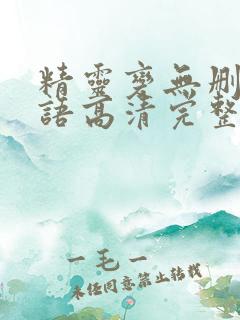 精靈變無刪
語高清完整
一毛一
未經同意禁止轉載